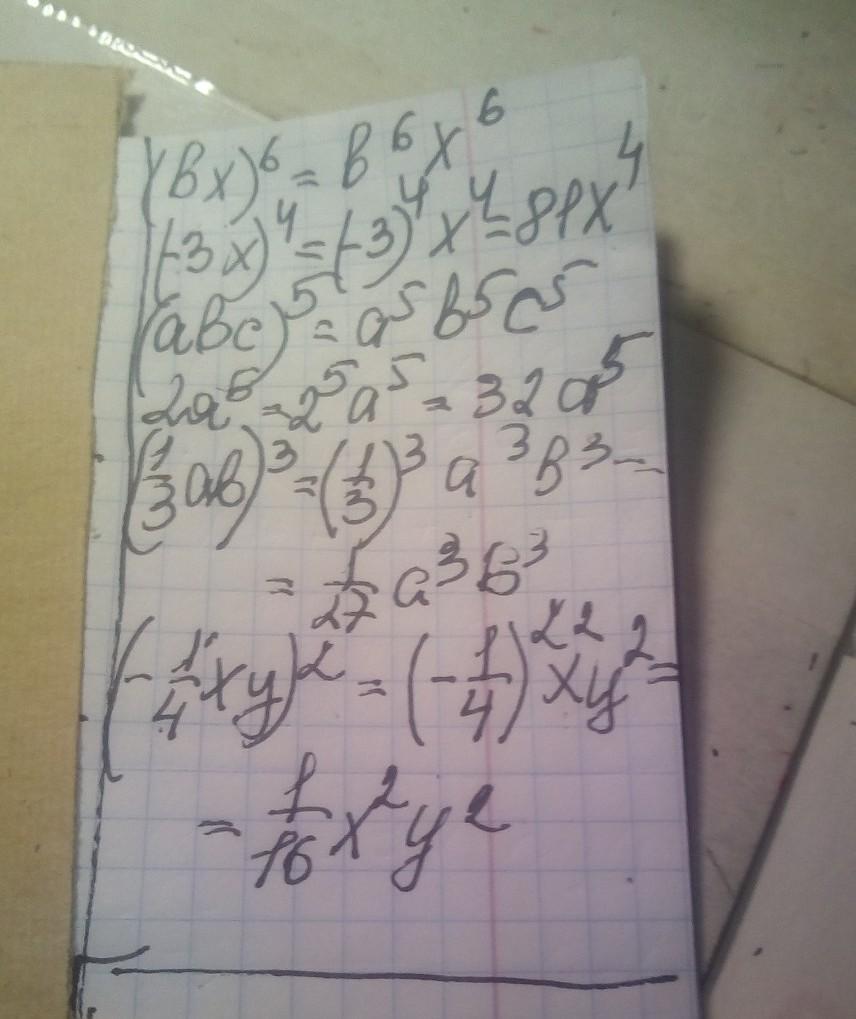 (bx)⁶ = b⁶x⁶
(-3x)⁴ = (-3)⁴x⁴ = 81x⁴
(abc)⁵ = a⁵b⁵c⁵
2a⁵ = 2⁵a⁵ = 32a⁵
(1/3 ab)³ = (1/3)³ a³b³ =
= 1/27 a³b³
(-1/4 xy)² = (-1/4)² x²y² =
= 1/16 x²y²